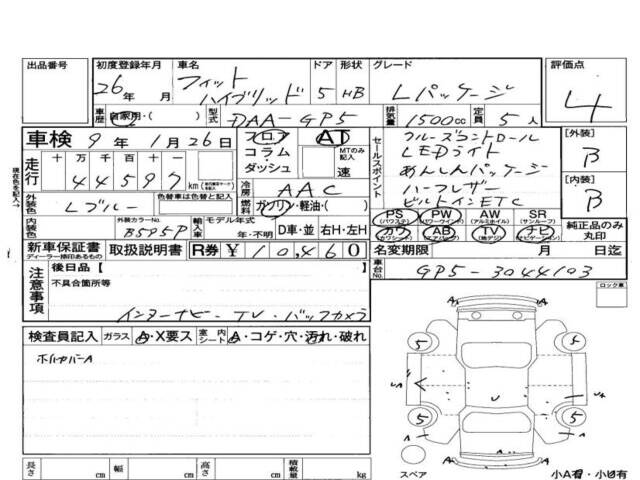 出品番号
初度登録年月 26年 月
車名 フィット ハイブリッド
ドア 5 形状 HB
グレード Lパッケージ
評価点 4
車歴 自家用・( )
型式 DAA-GP5
排気量 1500cc
定員 5人
車検 9年 1月 26日
フロア コラム・ダッシュ
AT MTのみ記入 速
セールスポイント
クルーズコントロール
LEDライト
あんしんパッケージ
ハーフレザー
ビルトインETC
[外装] B
[内装] B
現在色を記入→
走行 十万 千百十 44597 km
冷房 AAC
外装色 Lブルー
色替車は色替と記入
燃料 ガソリン・軽油・( )
内装色
外装カラーNo. B595P
輸入車 モデル年式 年・不明 D車・並 右H・左H
PS PW AW SR
カワ AB TV ナビ
純正品のみ丸印
新車保証書 ディーラー捺印あるもの
取扱説明書
R券 ¥10,460
名変期限 月 日迄
車台No. GP5-3044103
注意事項
後日品[ ]
不具合箇所等
インターナビ・TV・バックカメラ
ロック車
検査員記入 ガラス A・X要ス 室内シート A・コゲ・穴・汚れ・破れ
5 5
UA
U
5 5
スペア
小A有・小U有
長さ cm 幅 cm 高さ cm 積載量 kg